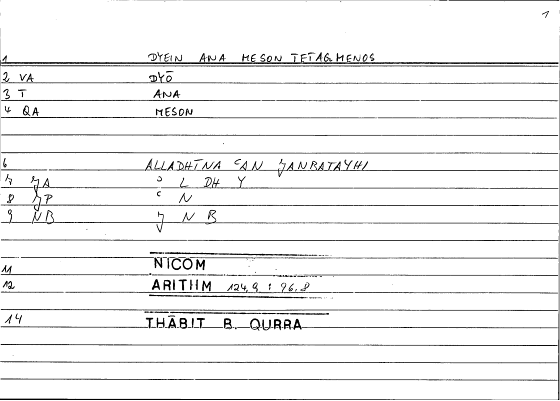 1
1 DYEIN ANA MESON TETAGMENOS
2 VA DYŌ
3 T ANA
4 QA MESON
6 ALLADHĪNA ʿAN ǦANBATAYHI
7 ǦA ʾ L DH Y
8 ǦP ʿ N
9 NB Ǧ N B
11 NICOM
12 ARITHM 124,9 : 96,8
14 THĀBIT B. QURRA